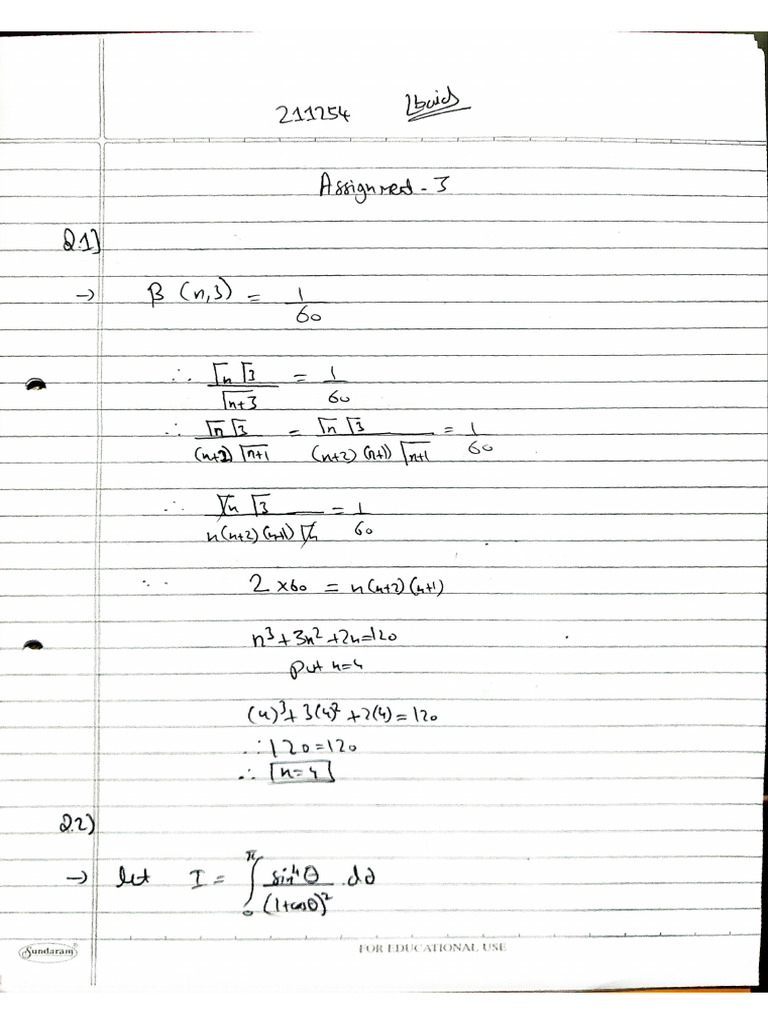 211254 Ibaid
Assignment - 3
Q.1]
→ β (n,3) = 1/60
∴ Γn Γ3 / Γn+3 = 1/60
∴ Γn Γ3 / (n+2) Γn+1 = Γn Γ3 / (n+2) (n+1) Γn+1 = 1/60
∴ Γn Γ3 / n(n+2) (n+1) Γn = 1/60
∴ 2 × 60 = n(n+2) (n+1)
n³ + 3n² + 2n = 120
put n=4
(4)³ + 3(4)² + 2(4) = 120
∴ 120 = 120
∴ n=4
Q.2)
→ let I = ∫₀^π sin⁴θ / (1+cosθ)² . dθ
Sundaram® FOR EDUCATIONAL USE